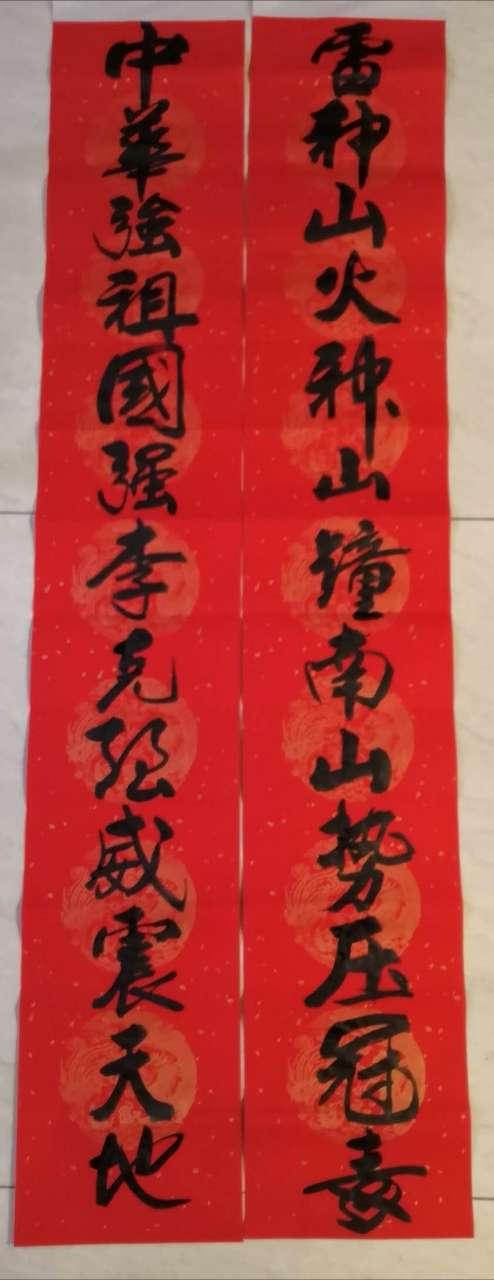 雷神山火神山鐘南山勢压冠毒
中華強祖國强李克强威震天地